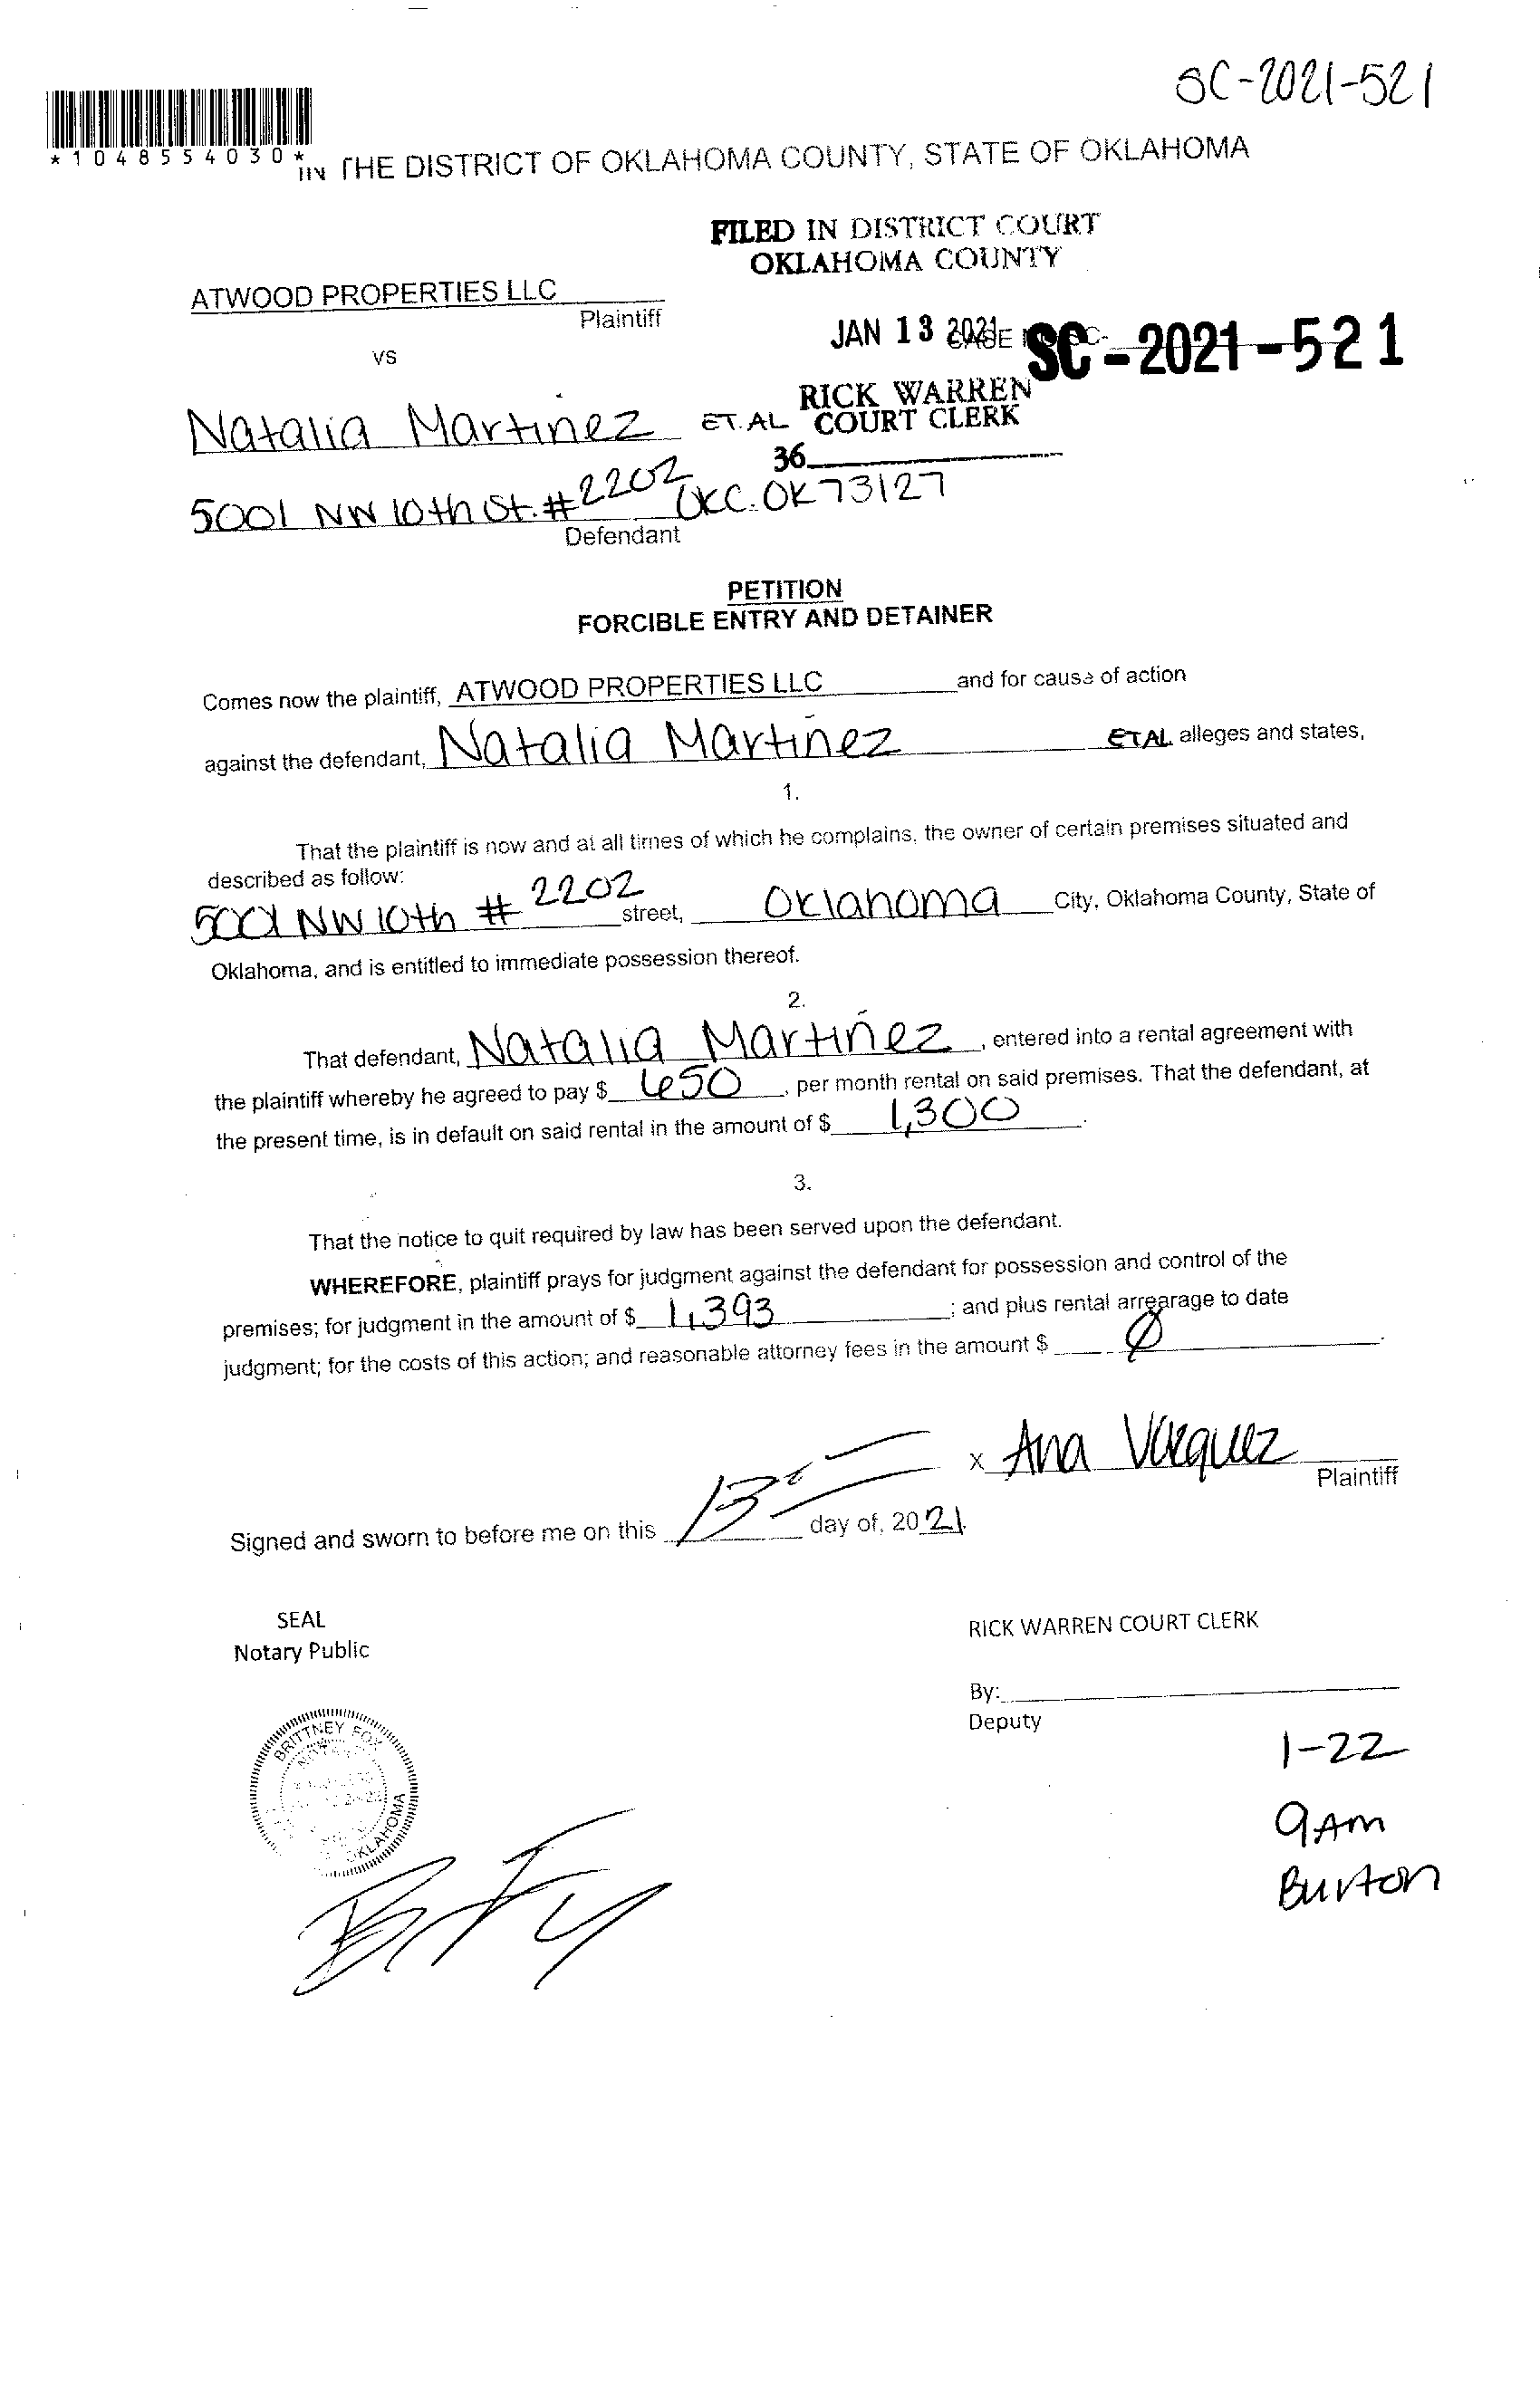 SC-2021-521
*1048554030*
IN THE DISTRICT OF OKLAHOMA COUNTY, STATE OF OKLAHOMA
FILED IN DISTRICT COURT
OKLAHOMA COUNTY
ATWOOD PROPERTIES LLC
Plaintiff
JAN 13 2021 SC-2021-521
vs
RICK WARREN
Natalia Martinez ET.AL COURT CLERK
36
5001 NW 10th St. #2202 OKC. OK 73127
Defendant
PETITION
FORCIBLE ENTRY AND DETAINER
Comes now the plaintiff, ATWOOD PROPERTIES LLC and for cause of action
against the defendant, Natalia Martinez ETAL alleges and states,
1.
That the plaintiff is now and at all times of which he complains, the owner of certain premises situated and
described as follow:
5001 NW 10th # 2202 street, Oklahoma City, Oklahoma County, State of
Oklahoma, and is entitled to immediate possession thereof.
2.
That defendant, Natalia Martinez, entered into a rental agreement with
the plaintiff whereby he agreed to pay $ 650, per month rental on said premises. That the defendant, at
the present time, is in default on said rental in the amount of $ 1,300.
3.
That the notice to quit required by law has been served upon the defendant.
WHEREFORE, plaintiff prays for judgment against the defendant for possession and control of the
premises; for judgment in the amount of $ 1,393; and plus rental arrearage to date
judgment; for the costs of this action; and reasonable attorney fees in the amount $ Ø.
x Ana Vazquez
Plaintiff
Signed and sworn to before me on this 13 day of, 2021.
SEAL
Notary Public
RICK WARREN COURT CLERK
By:
Deputy
BRITTNEY FOX
OKLAHOMA
1-22
9AM
Burton